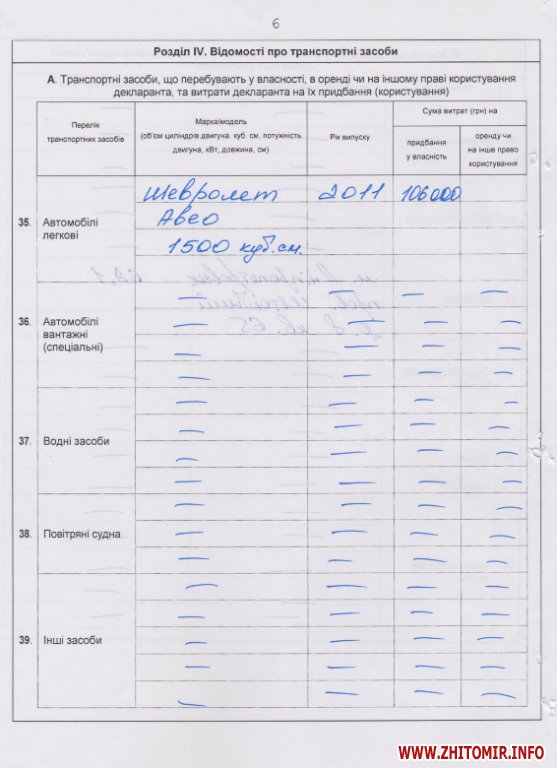 6
Розділ IV. Відомості про транспортні засоби
А. Транспортні засоби, що перебувають у власності, в оренді чи на іншому праві користування
декларанта, та витрати декларанта на їх придбання (користування)
Перелік
транспортних засобів
Марка/модель
(об'єм циліндрів двигуна, куб. см, потужність
двигуна, кВт, довжина, см)
Рік випуску
Сума витрат (грн) на
придбання
у власність
оренду чи
на інше право
користування
35. Автомобілі
легкові
Шевролет 2011 106000
Авео
1500 куб.см.
36. Автомобілі
вантажні
(спеціальні)
37. Водні засоби
38. Повітряні судна
39. Інші засоби
WWW.ZHITOMIR.INFO